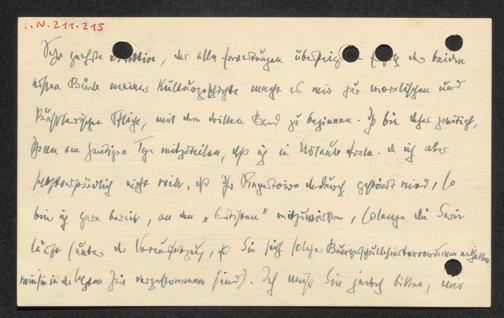 I.N. 211.215
Sehr geehrte Direktion, der alle Erwartungen übersteigende Erfolg der beiden
ersten Bände meiner Kulturgeschichte macht es mir zur moralischen und
künstlerischen Pflicht, mit dem dritten Band zu beginnen. Ich bin daher genötigt,
Ihnen am heutigen Tage mitzuteilen, daß ich in Urlaub trete. da ich aber
selbstverständlich nicht will, daß Ihr Repertoire dadurch gestört wird, so
bin ich gern bereit, an den "Artisten" mitzuwirken, solange die Serie
läuft (unter der Voraussetzung, daß Sie sich solcher
wie sie in der letzten Zeit vorgekommen sind). Ich muß Sie jedoch bitten, mir